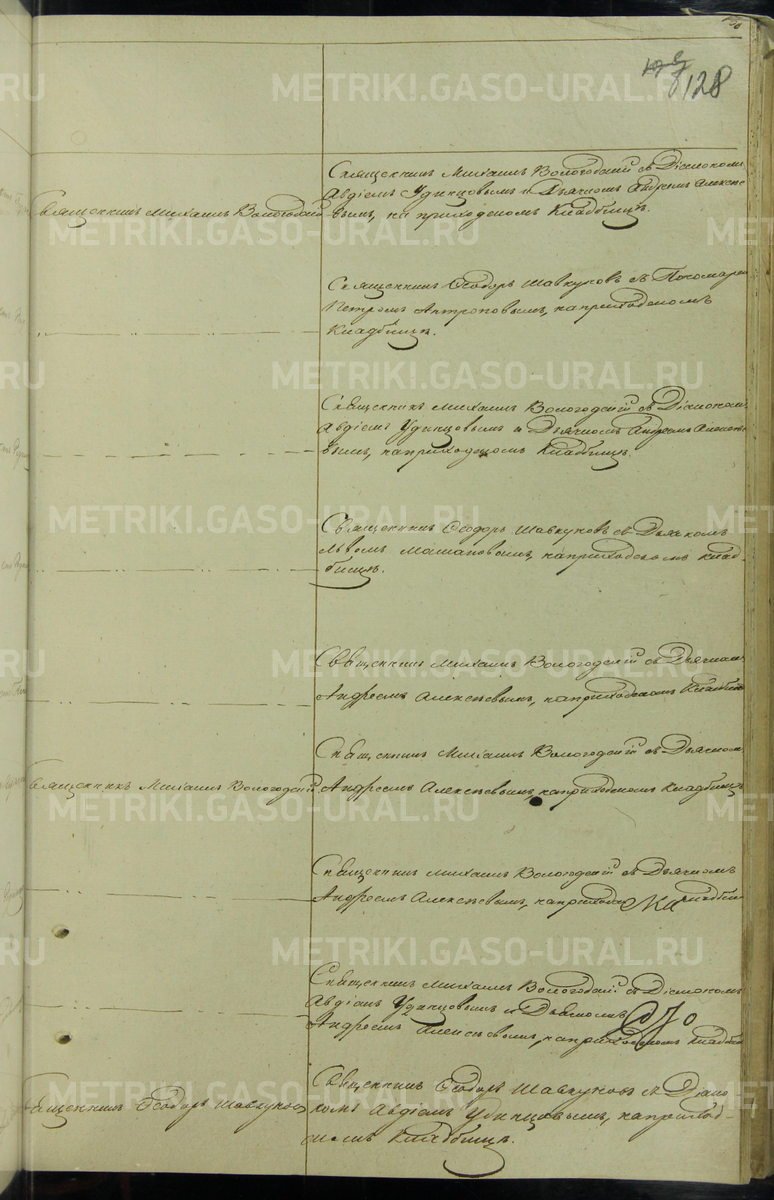 128
Священникъ Михаилъ Вологодскій съ Діакономъ
Авдіемъ Удинцовымъ и Дьячкомъ Андреемъ Алексѣе-
Священникъ Михаилъ Вологодскій
вымъ, на приходскомъ Кладбищѣ.
Священникъ Ѳеодоръ Шавкуновъ съ Пономаремъ
Петромъ Антроповымъ, на приходскомъ
Кладбищѣ.
Священникъ Михаилъ Вологодскій съ Діакономъ
Авдіемъ Удинцовымъ и Дьячкомъ Андреемъ Алексѣе-
вымъ, на приходскомъ Кладбищѣ.
Священникъ Ѳеодоръ Шавкуновъ съ Дьячкомъ
на приходскомъ клад-
бищѣ.
Священникъ Михаилъ Вологодскій съ Дьячкомъ
Андреемъ Алексѣевымъ, на приходскомъ Кладбищѣ
Священникъ Михаилъ Вологодскій съ Дьячкомъ
Священникъ Михаилъ Вологодскій
Андреемъ Алексѣевымъ, на приходскомъ Кладбищѣ
Священникъ Михаилъ Вологодскій съ Дьячкомъ
Андреемъ Алексѣевымъ, на приходско кладбищѣ
Священникъ Михаилъ Вологодскій съ Діакономъ
Авдіемъ Удинцовымъ и Дьячкомъ
Андреемъ Алексѣевымъ, на приходскомъ Кладбищѣ
Священникъ Ѳеодоръ Шавкуновъ съ Діако-
Священникъ Ѳеодоръ Шавкуновъ
номъ Авдіемъ Удинцовымъ, на приход-
скомъ Кладбищѣ.
METRIKI.GASO-URAL.RU